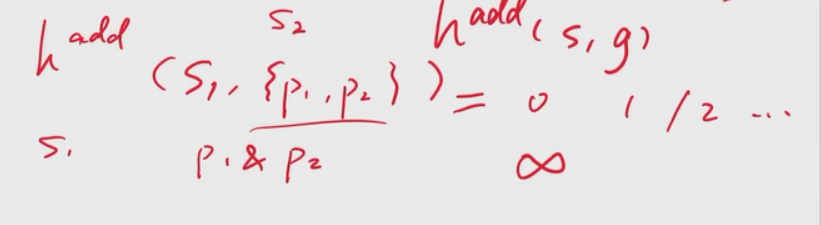 h^add s₂ h^add(s, g)
(s₁, {p₁, p₂}) = 0 1 / 2 ...
s₁ p₁ & p₂ ∞